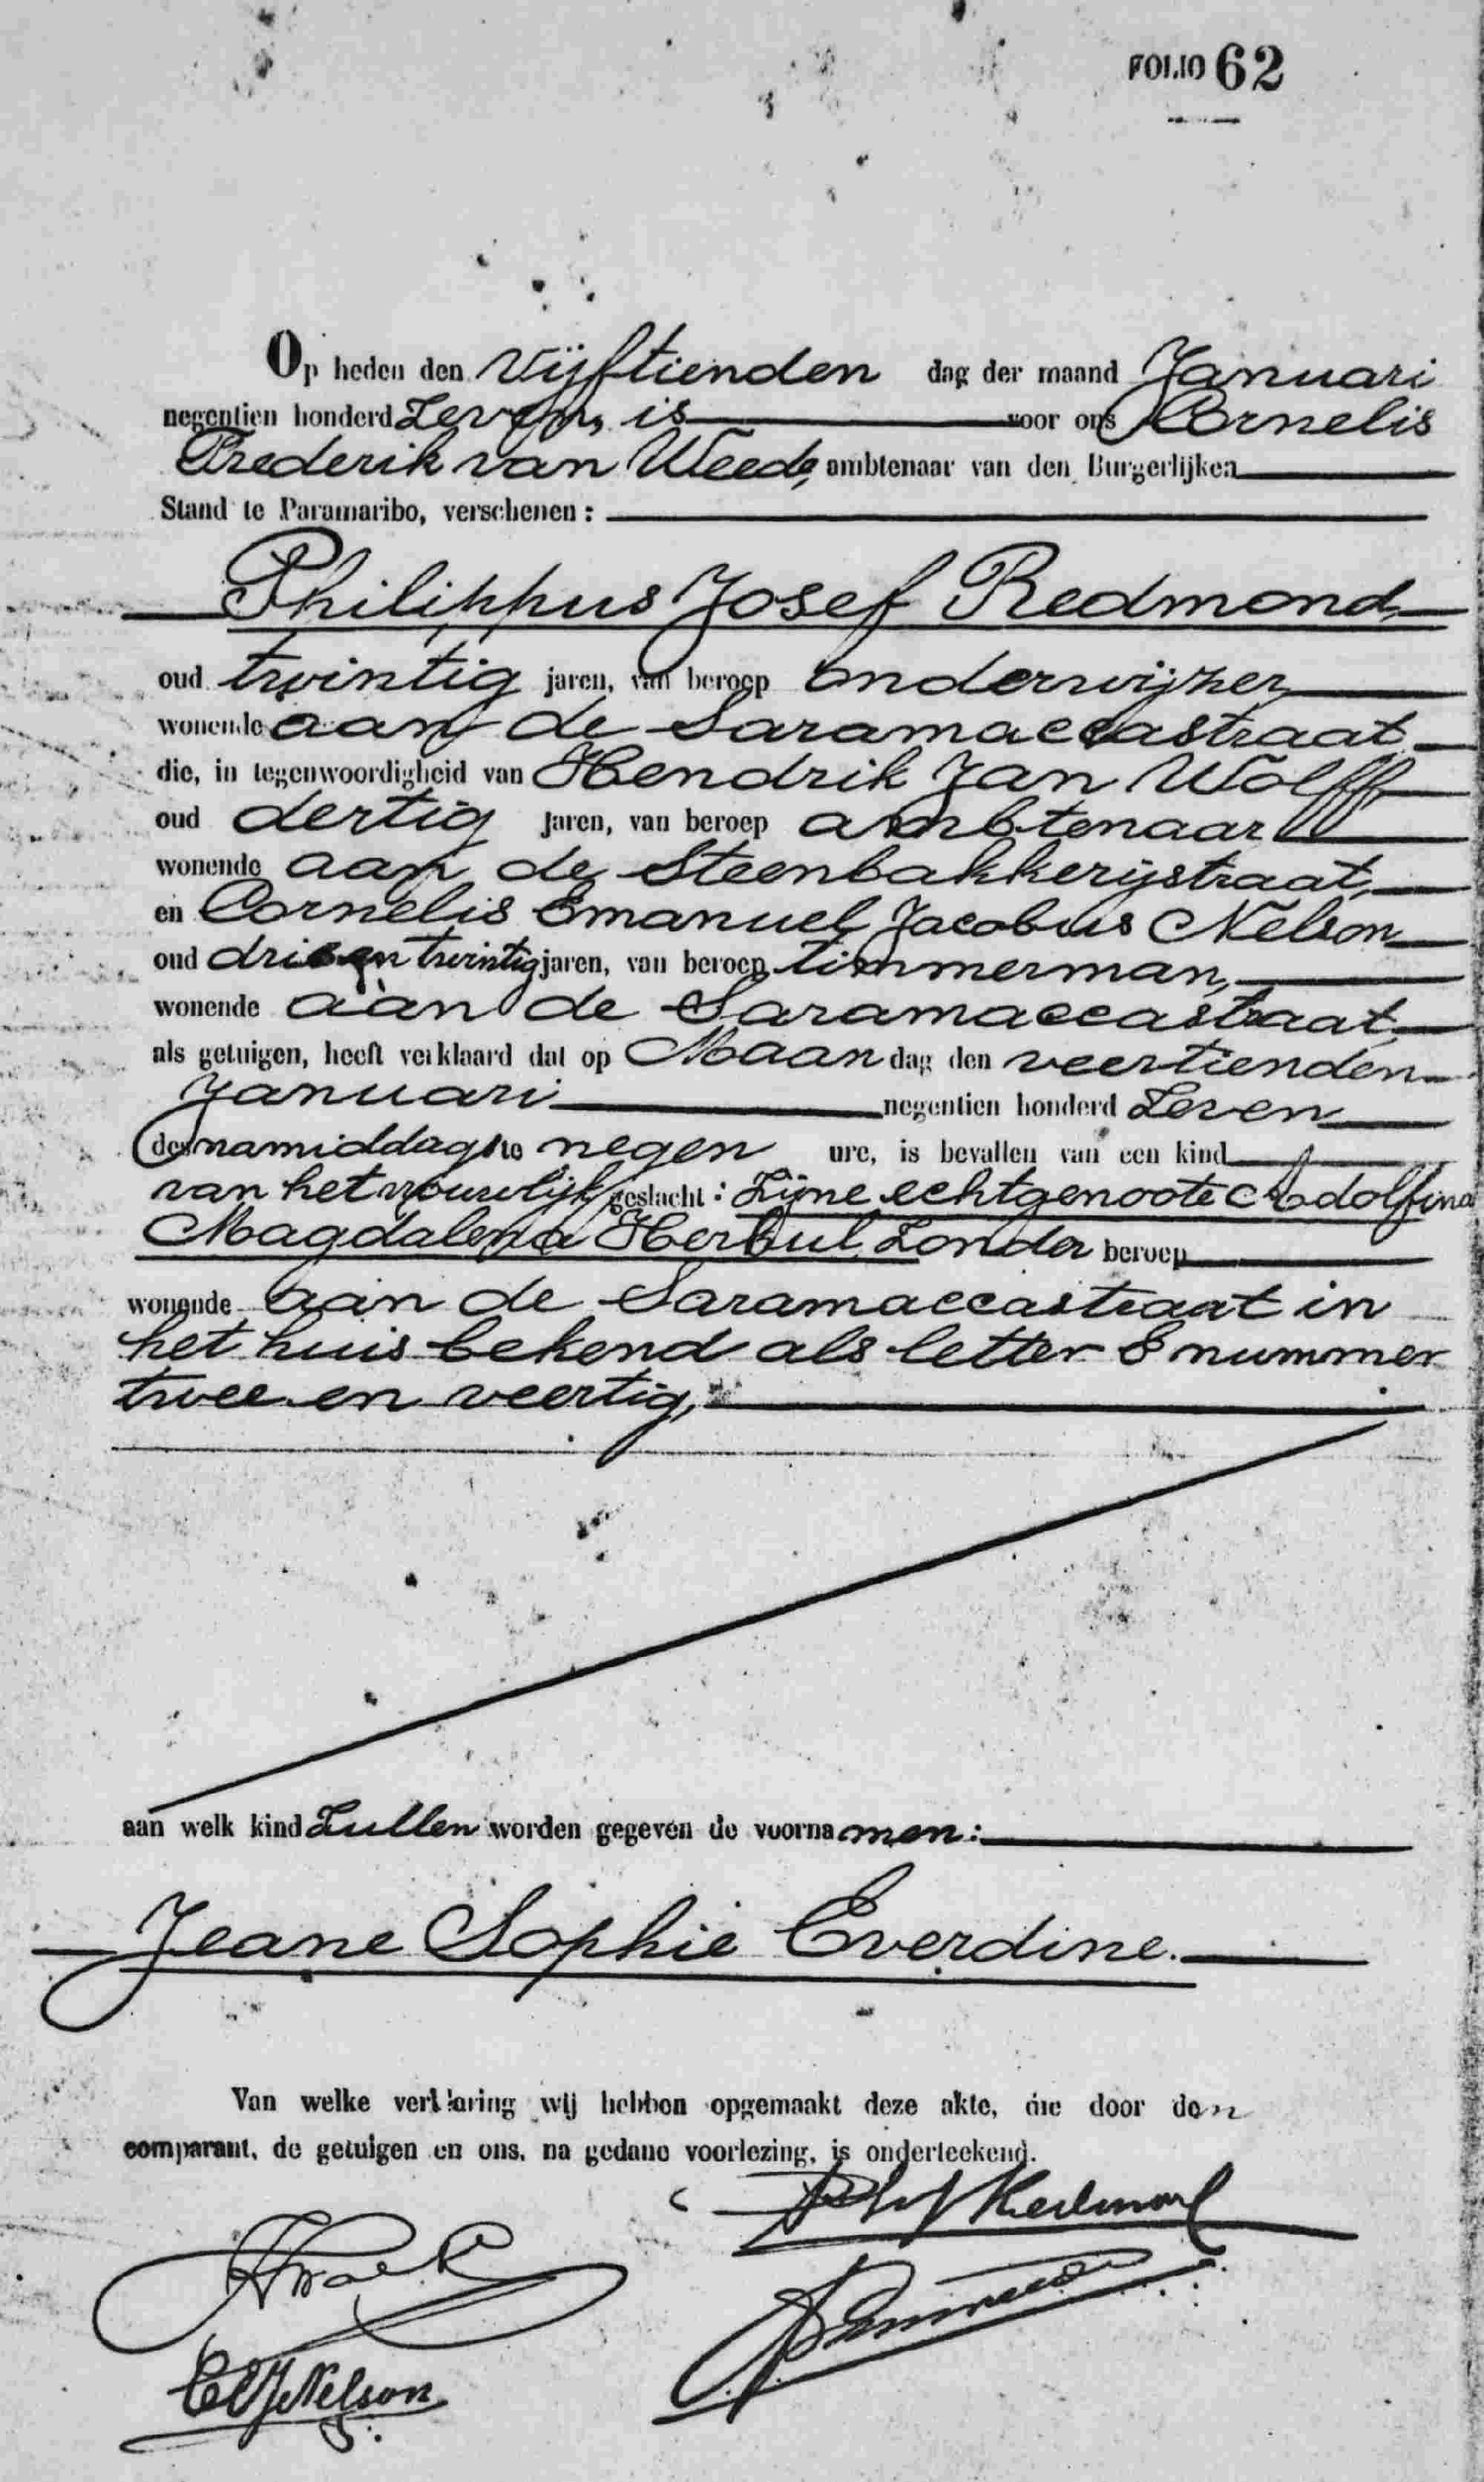 FOLIO 62
Op heden den Vijftienden dag der maand Januari
negentien honderd Zeven, is voor ons Cornelis
Frederik van Weede, ambtenaar van den Burgerlijken
Stand te Paramaribo, verschenen:
Philippus Josef Redmond,
oud twintig jaren, van beroep onderwijzer,
wonende aan de Saramaccastraat
die, in tegenwoordigheid van Hendrik Jan Wolff
oud dertig jaren, van beroep ambtenaar
wonende aan de Steenbakkerijstraat,
en Cornelis Emanuel Jacobus Nelson
oud drie en twintig jaren, van beroep timmerman,
wonende aan de Saramaccastraat,
als getuigen, heeft verklaard dat op Maandag den veertienden
Januari negentien honderd Zeven
des namiddags te negen ure, is bevallen van een kind
van het vrouwelijk geslacht: Zijne echtgenoote Adolfina
Magdalena Herbul, Zonder beroep
wonende aan de Saramaccastraat in
het huis bekend als letter E nummer
twee en veertig,
aan welk kind Zullen worden gegeven de voornamen:
Jeane Sophie Everdine.
Van welke verklaring wij hebben opgemaakt deze akte, die door den
comparant, de getuigen en ons, na gedane voorlezing, is onderteekend.
Redmond
CEJNelson